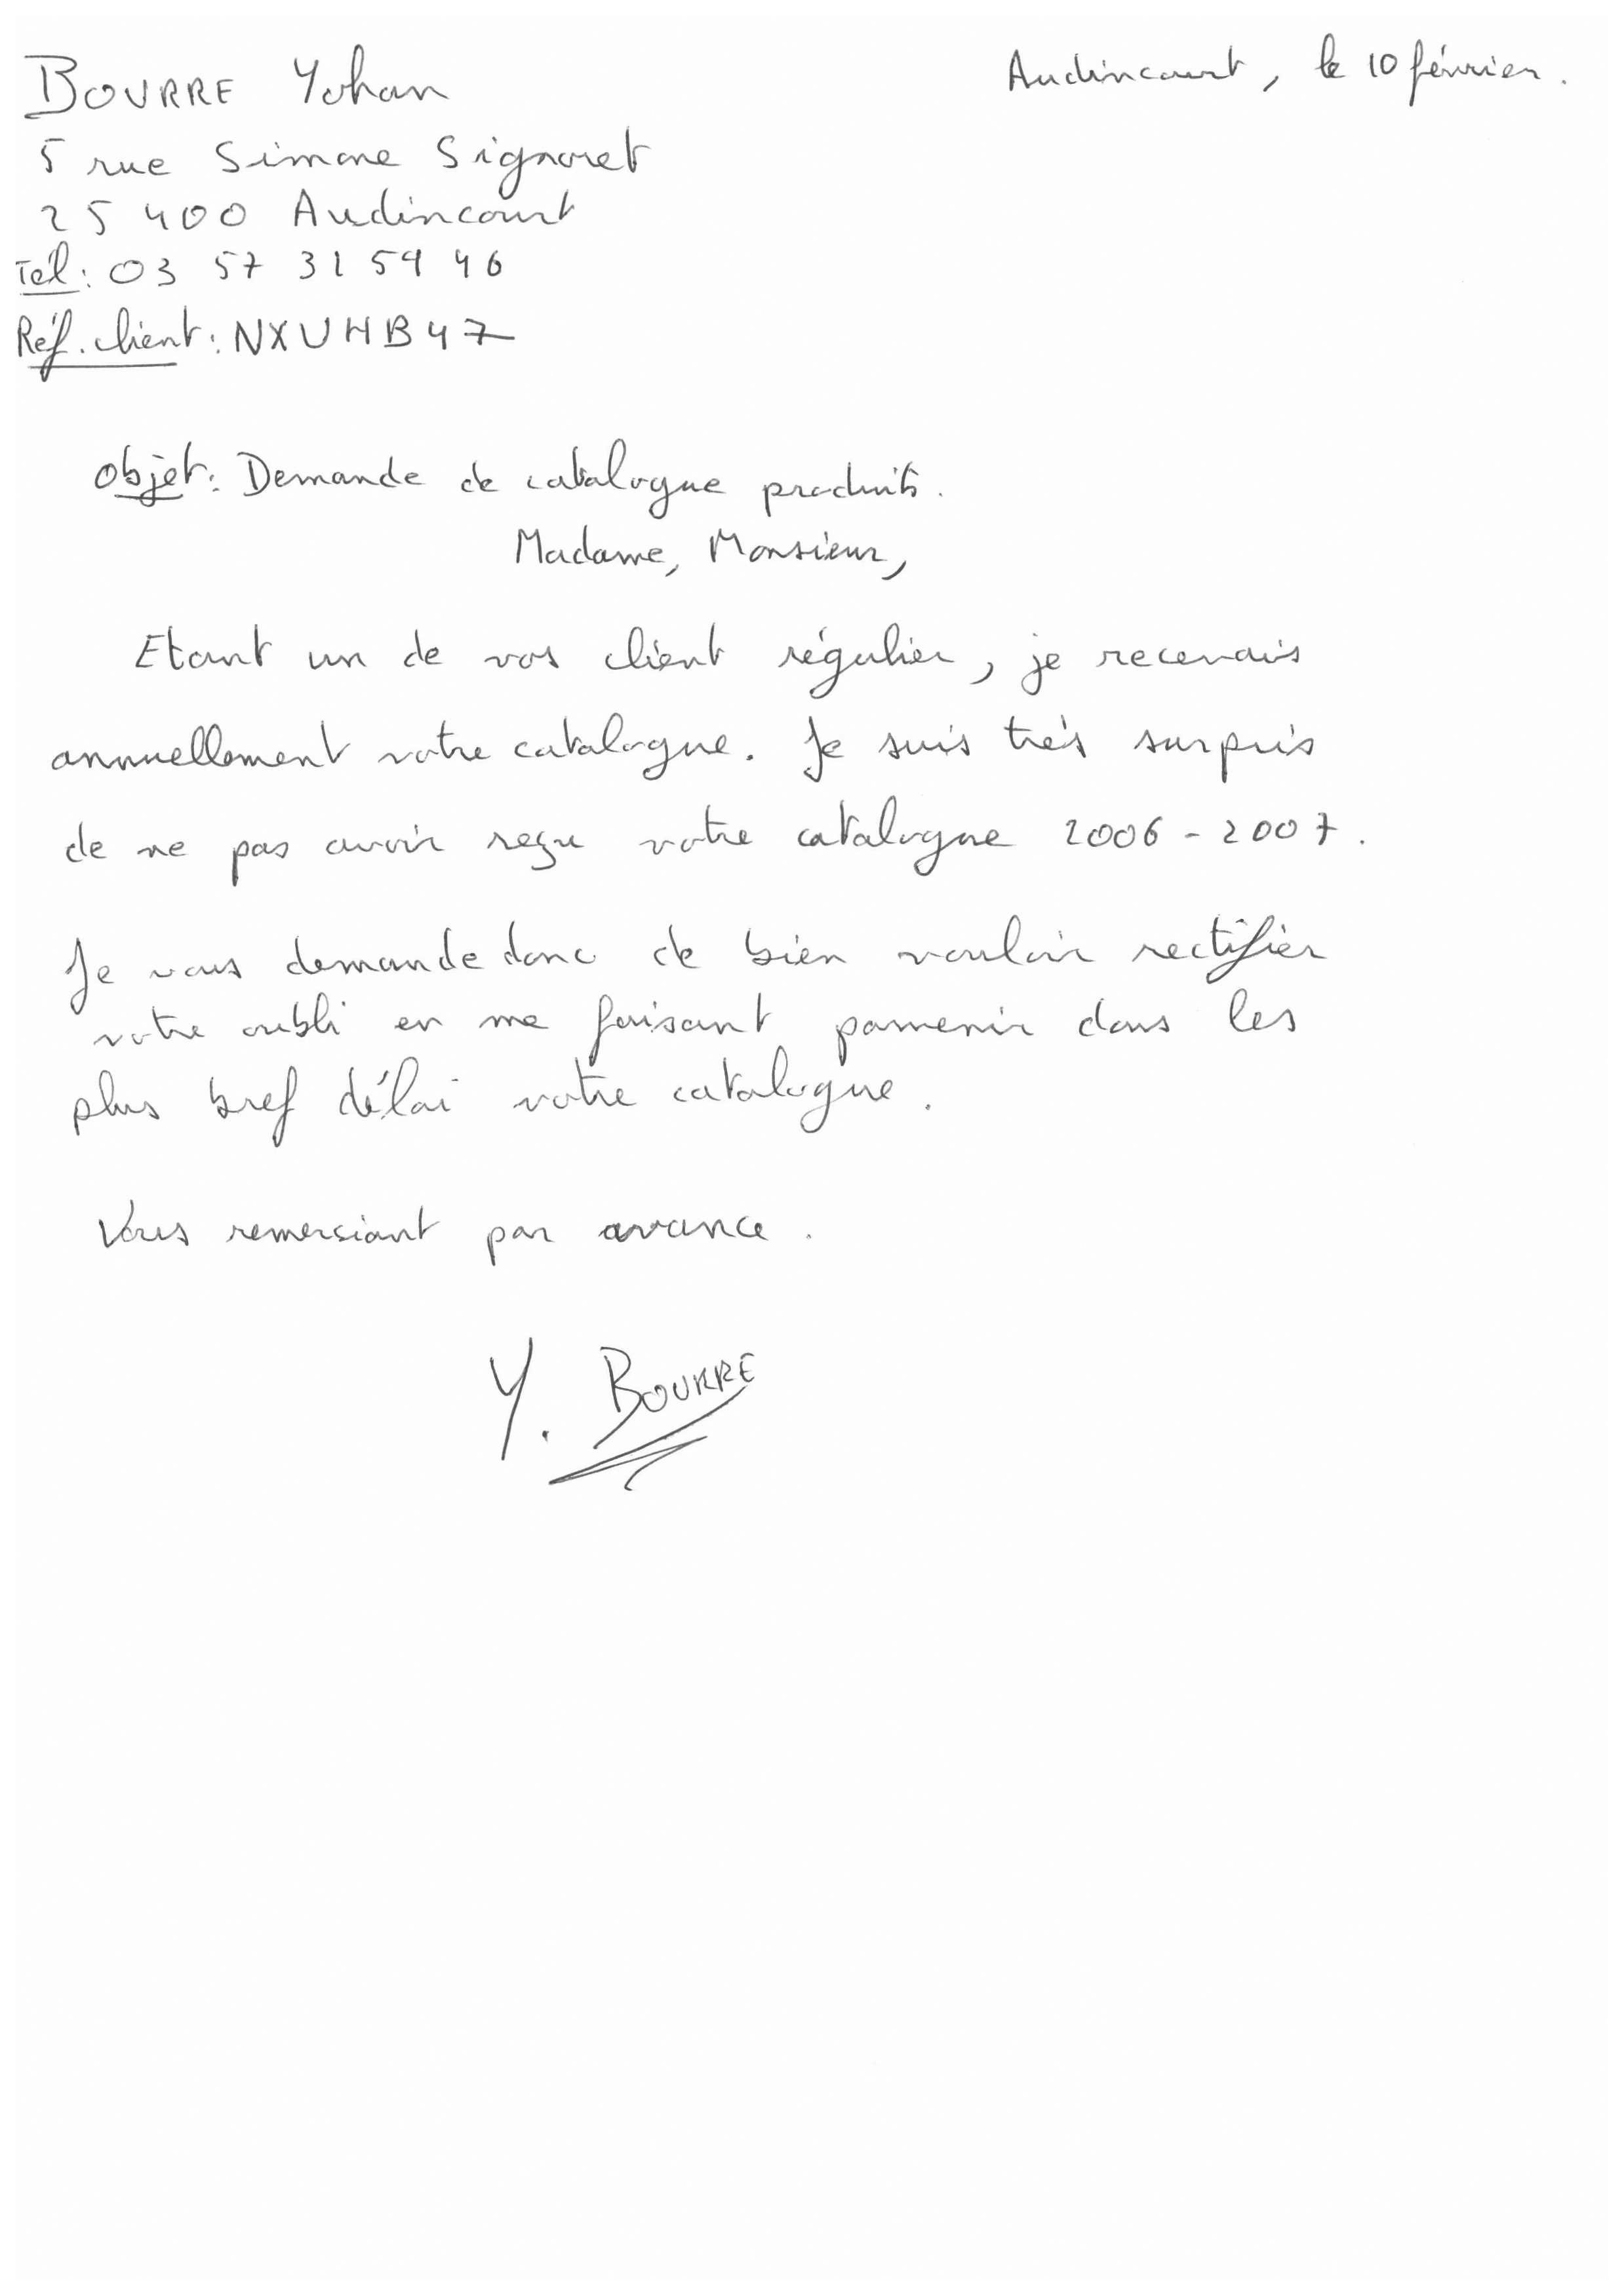 BOURRE Yohan
Audincourt, le 10 février.
5 rue Simone Signoret
25 400 Audincourt
Tél: 03 57 31 59 46
Réf. client: NXUHB47
Objet: Demande de catalogue produits.
Madame, Monsieur,
Etant un de vos client régulier, je recevais
annuellement votre catalogue. Je suis très surpris
de ne pas avoir reçu votre catalogue 2006-2007.
Je vous demande donc de bien vouloir rectifier
votre oubli en me faisant parvenir dans les
plus bref délai votre catalogue.
Vous remersiant par avance.
Y. BOURRE